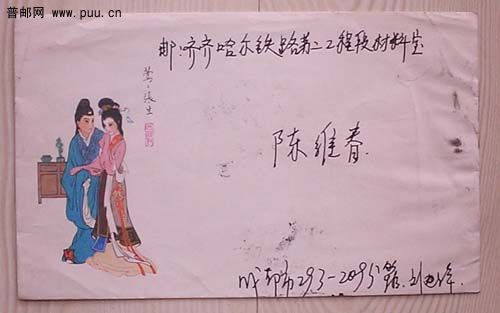 普邮网 www.puu.cn
邮:齐齐哈尔铁路第二工程段材料室
莺莺张生
陈维春
成都市293-209分箱